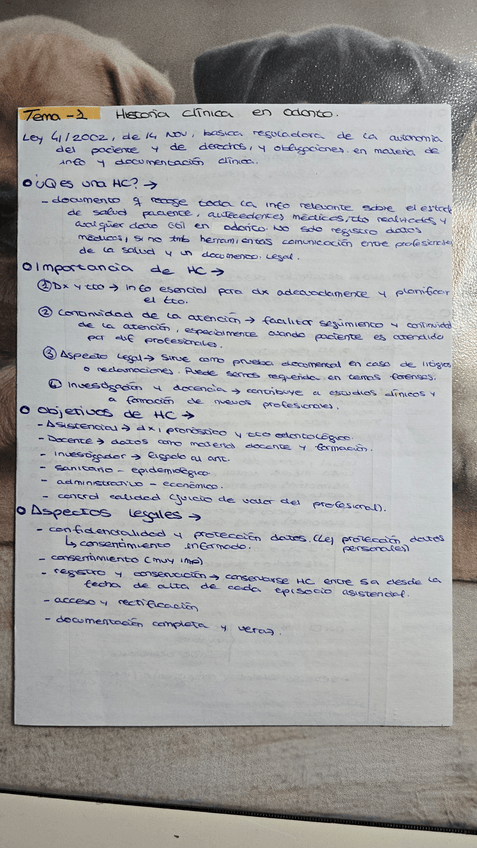 Tema - 1 Historia clínica en odonto.
Ley 41/2002, de 14 Nov, básica reguladora de la autonomía
del paciente y de derechos, y obligaciones en materia de
info y documentación clínica.
¿Q es una HC? →
- documento q recoge toda la info relevante sobre el estado
de salud paciente, antecedentes médicos, tto realizados y
cualquier dato útil en odonto. No solo registro datos
médicos, si no tmb herramientas comunicación entre profesionales
de la salud y un documento legal.
Importancia de HC →
① Dx y tto → info esencial para dx adecuadamente y planificar
el tto.
② Continuidad de la atención → facilitar seguimiento y continuidad
de la atención, especialmente cuando paciente es atendido
por dif profesionales.
③ Aspecto legal → sirve como prueba documental en caso de litigios
o reclamaciones. Puede ser requerida en temas forenses.
④ Investigación y docencia → contribuye a estudios clínicos y
a formación de nuevos profesionales.
Objetivos de HC →
- Asistencial → dx, pronóstico y tto odontológico.
- Docente → datos como material docente y formación.
- investigador → ligado al ant.
- sanitario - epidemiológico
- administrativo - económico.
- control calidad (juicio de valor del profesional).
Aspectos legales →
- confidencialidad y protección datos. (Ley protección datos
↳ consentimiento informado. personales)
- consentimiento (muy imp)
- registro y conservación → conservarse HC entre 5a desde la
fecha de alta de cada episodio asistencial.
- acceso y rectificación
- documentación completa y veraz.